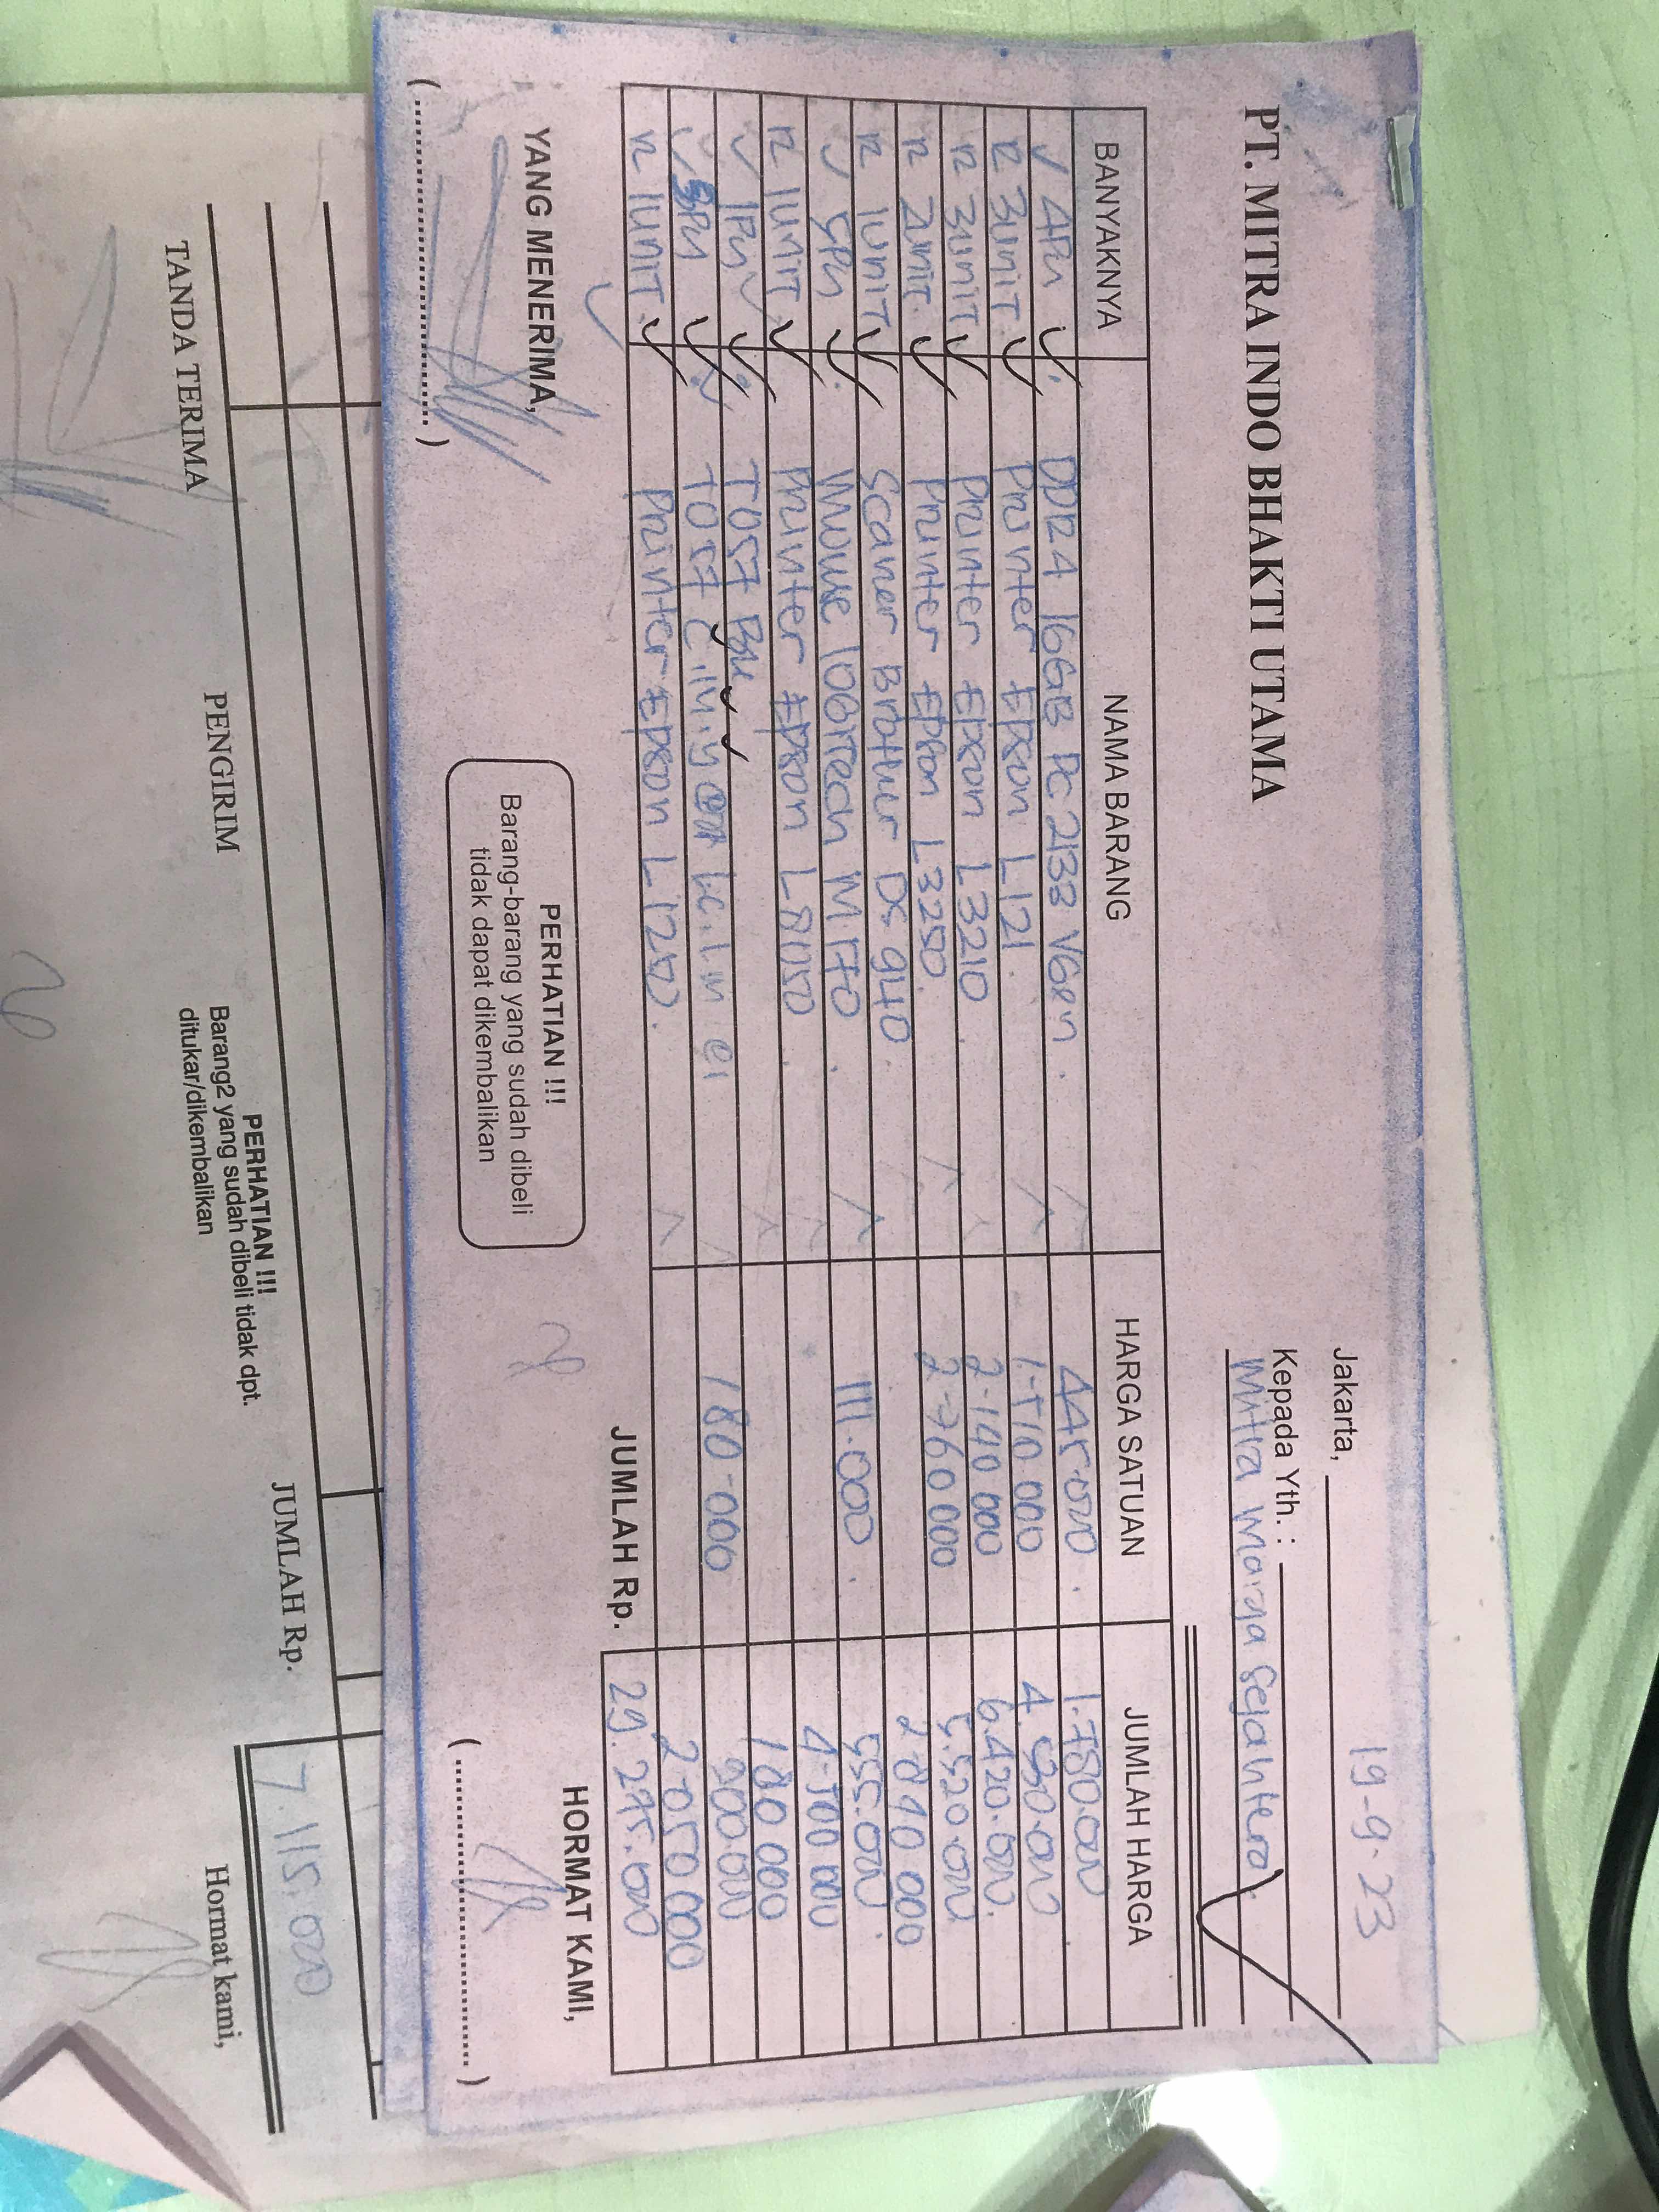 PT. MITRA INDO BHAKTI UTAMA
Jakarta, 19-9-23
Kepada Yth. :
Mitra Marga Sejahtera
BANYAKNYA NAMA BARANG HARGA SATUAN JUMLAH HARGA
4 Pcs DDR4 16GB PC 2133 VGen 445.000 1.780.000
3 unit Printer Epson L121 000
3 unit Printer Epson L3210 2.140.000 6.420.000
2 unit Printer Epson L3250 2.760.000 5.520.000
1 unit Scaner Brother DS 940 000
5 Pcs Mouse Logitech M170 111.000 555.000
1 unit Printer Epson L8050 000
1 Pcs T057 Bk 180.000
Pcs T057 C.M.Y 180.000 900.000
1 unit Printer Epson L1250 2.050.000
JUMLAH Rp. 29.295.000
YANG MENERIMA,
PERHATIAN !!!
Barang-barang yang sudah dibeli
tidak dapat dikembalikan
HORMAT KAMI,
JUMLAH Rp. 7.115.000
TANDA TERIMA
PENGIRIM
PERHATIAN !!!
Barang2 yang sudah dibeli tidak dpt.
ditukar/dikembalikan
Hormat kami,